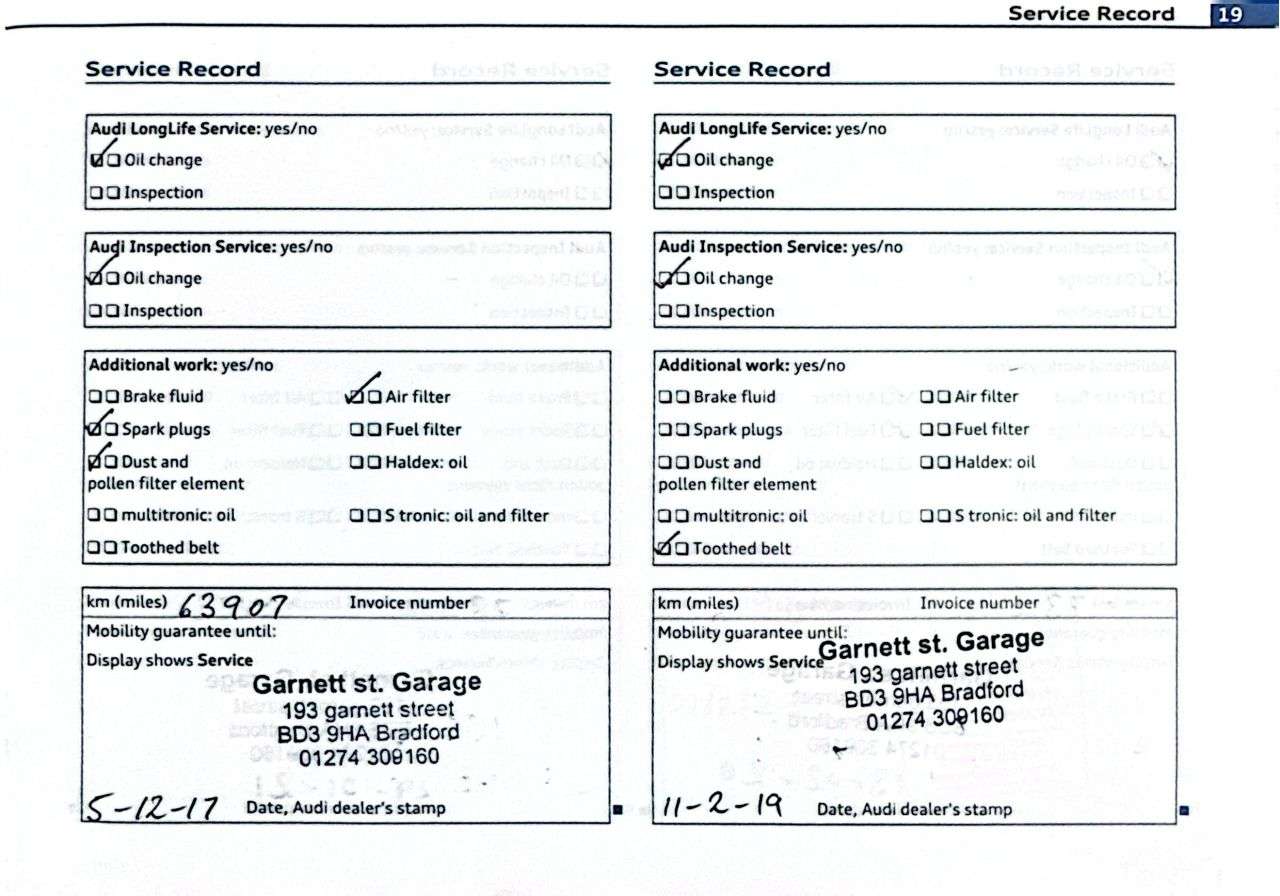 Service Record 19
Service Record
Audi LongLife Service: yes/no
Oil change
Inspection
Audi Inspection Service: yes/no
Oil change
Inspection
Additional work: yes/no
Brake fluid Air filter
Spark plugs Fuel filter
Dust and Haldex: oil
pollen filter element
multitronic: oil S tronic: oil and filter
Toothed belt
km (miles) 63907 Invoice number
Mobility guarantee until:
Display shows Service
Garnett st. Garage
193 garnett street
BD3 9HA Bradford
01274 309160
5-12-17 Date, Audi dealer's stamp
Service Record
Audi LongLife Service: yes/no
Oil change
Inspection
Audi Inspection Service: yes/no
Oil change
Inspection
Additional work: yes/no
Brake fluid Air filter
Spark plugs Fuel filter
Dust and Haldex: oil
pollen filter element
multitronic: oil S tronic: oil and filter
Toothed belt
km (miles) Invoice number
Mobility guarantee until:
Display shows Service
Garnett st. Garage
193 garnett street
BD3 9HA Bradford
01274 309160
11-2-19 Date, Audi dealer's stamp